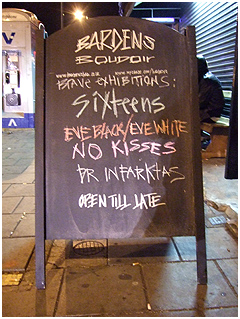 BARDENS
BOUDOIR
BRAVE EXHIBITIONS:
SIXTEENS
EVE BLACK/EVE WHITE
NO KISSES
DR INFARKTAS
OPEN TILL LATE